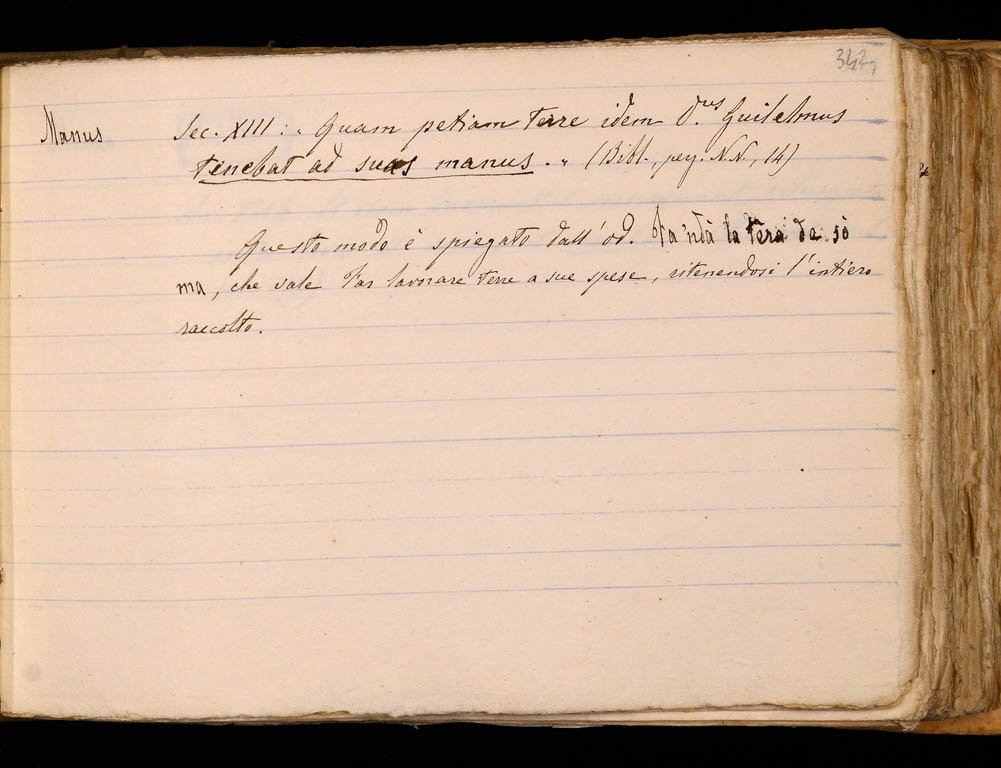 342
Manus Sec. XIII: "Quam petiam terre idem d.nus Guilelmus
tinebat ad suas manus." (Bibl., peg. N.N., 14)
Questo modo è spiegato dall'od. Fa 'ndà la tera da sò
ma, che vale far lavorare terre a sue spese, ritenendosi l'intiero
raccolto.